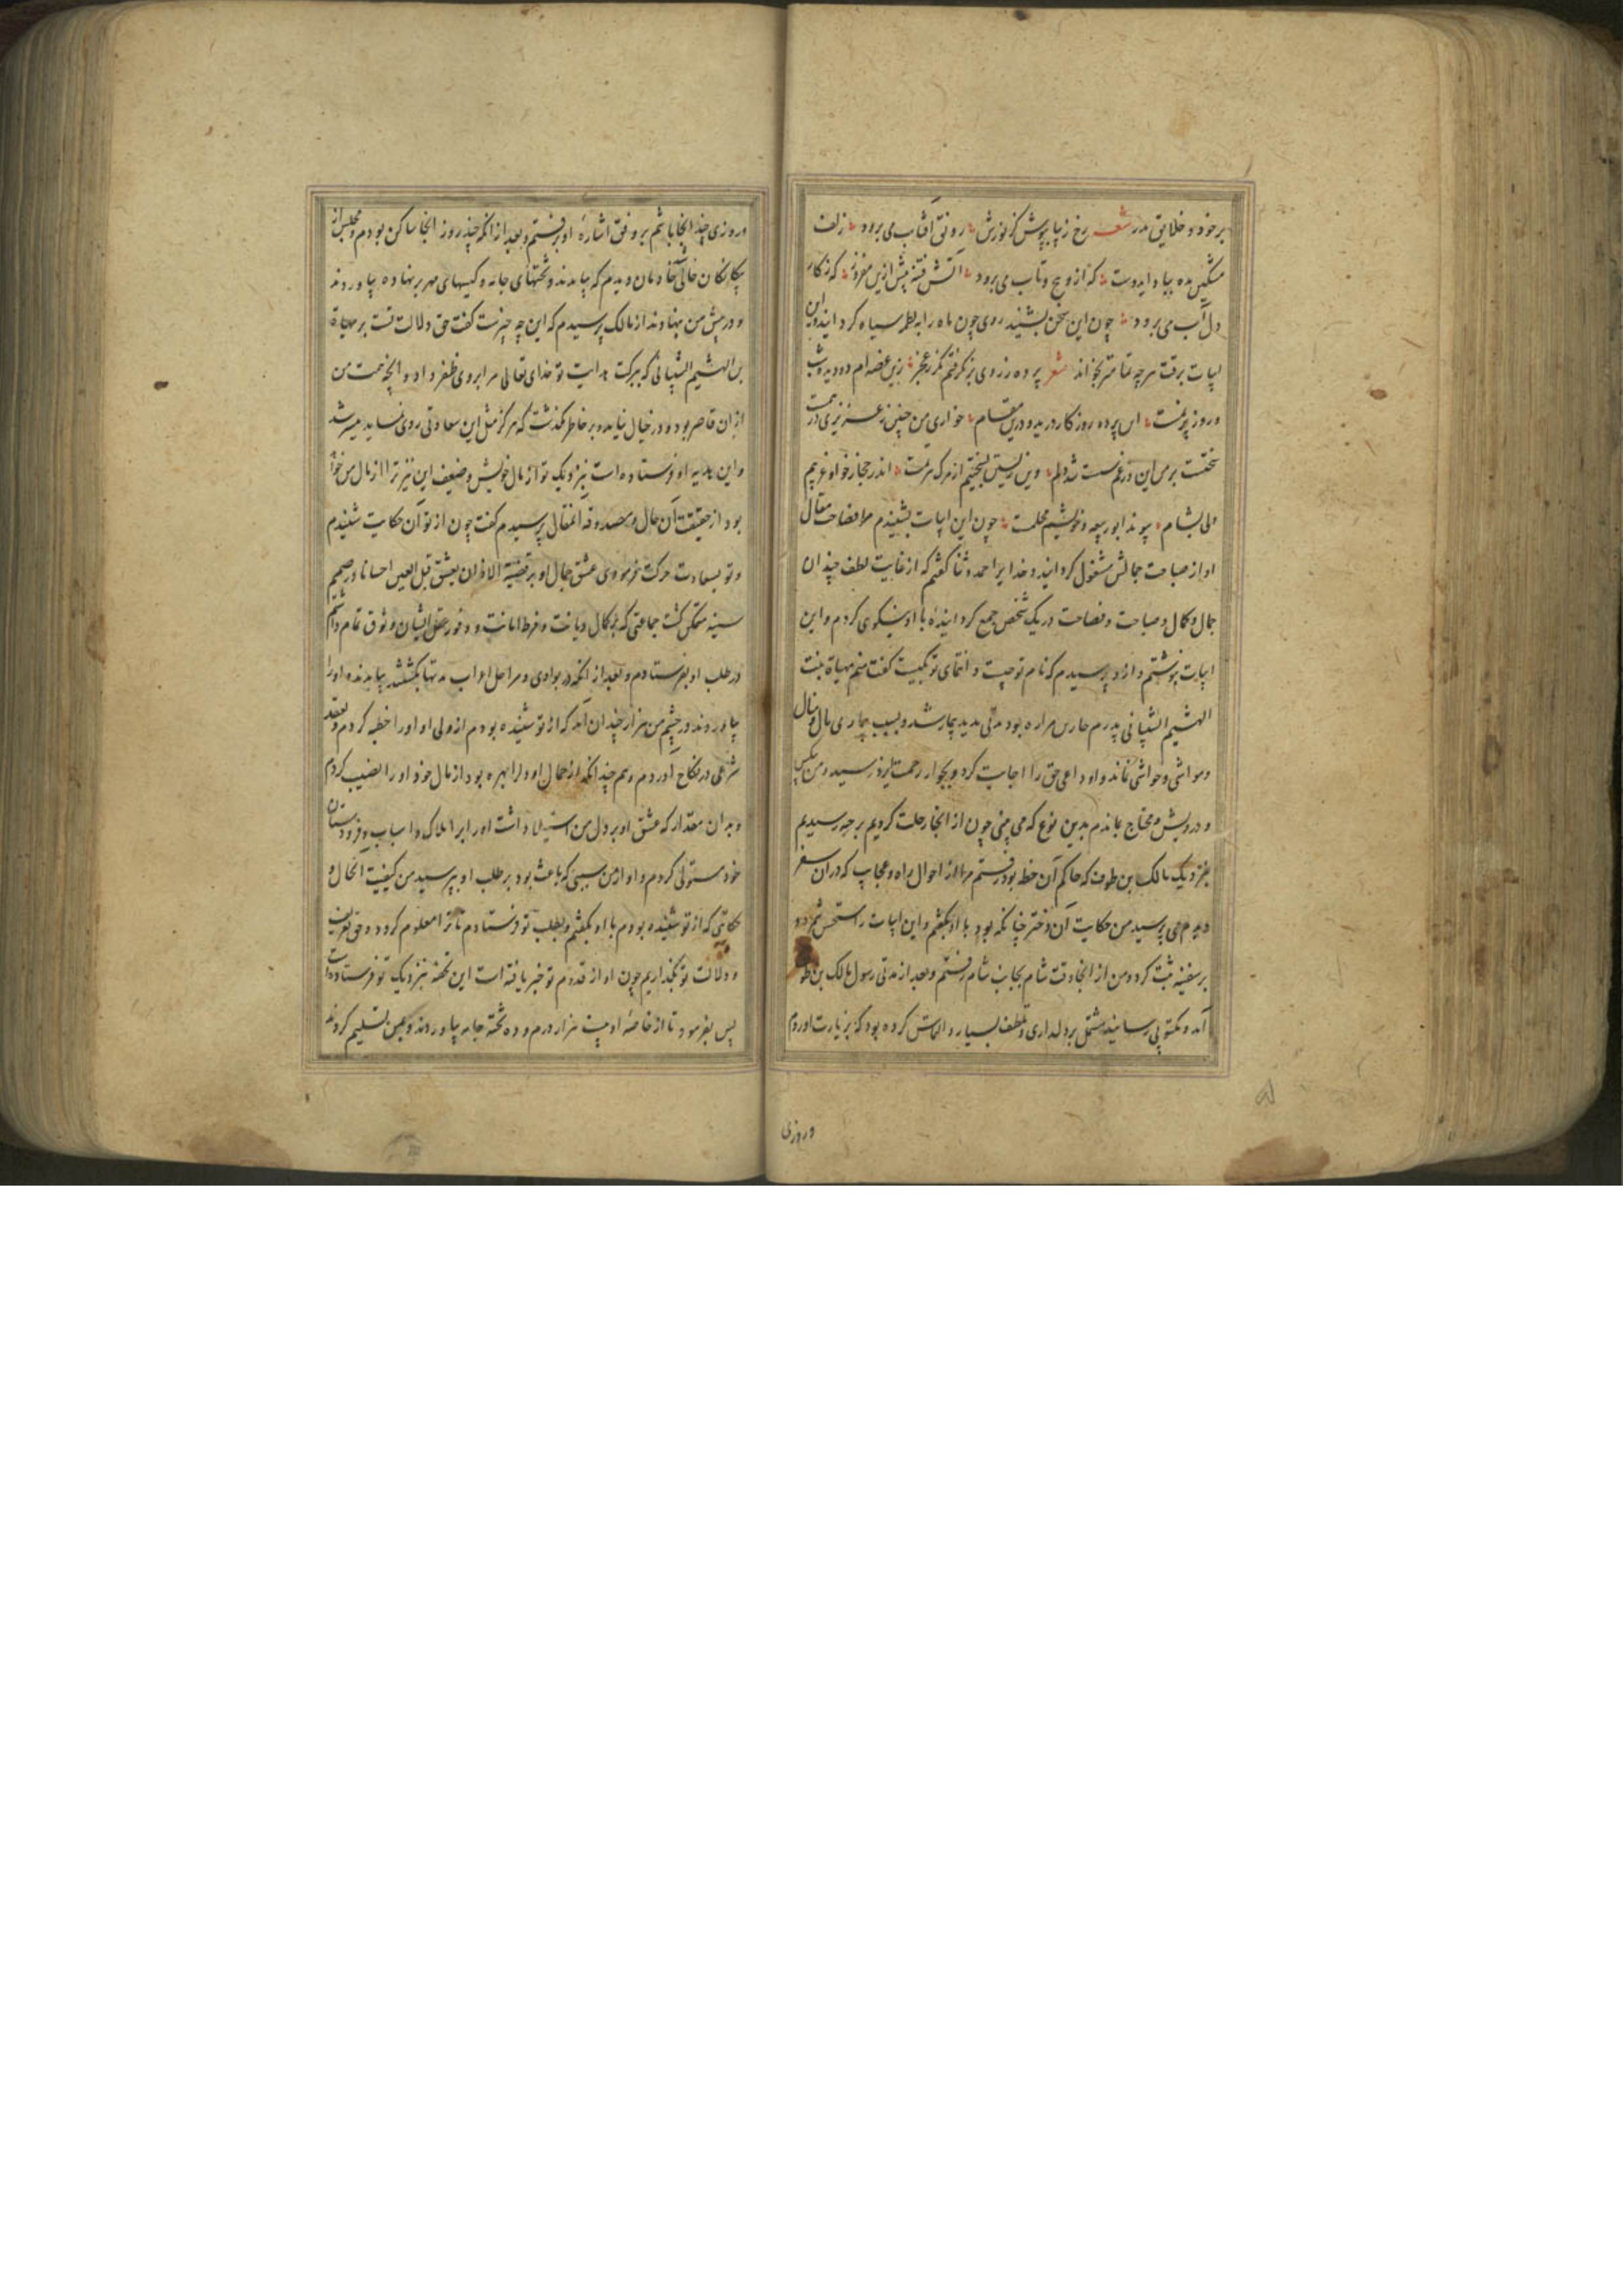 بر خود و خلایق مدر شعر رخ زیبا بپوش کز نورش رونق آفتاب می برود زلف
مشکین مده بباد ایدوست که ازو پیچ و تاب می برود آتش فتنه بیش ازین مفروز که ز کار
دل آب می برود چون این سخن بشنید روی چون ماه را به لطمه سیاه کردانید و این
ابیات برقت هرچه تمامتر بخواند شعر پرده ز روی بر نکرفتم مکر بعجز زین غصه ام دو دیده
و روز پر نمست این پرده روزکار درید و درین مقام خواری من چنین ز عزیزی
سختست بر من این و غم سست شد دلم وین زیستن بسختیم از مرک هر دمست اندر حجاز خواه غریبم
ولی بشام پیوند ابو ربیعه و خویشیم محکمست چون این ابیات بشنیدم مرا فصاحت مقال
او از صباحت جمالش مشغول کردانید و خدایرا حمد و ثنا کفتم که از غایت لطف چندان
جمال و کمال و صباحت و فصاحت در یک شخص جمع کرداینده با او نیکوی کردم و این
ابیات بنوشتم و ازو پرسیدم که نام تو چیست و انتمای تو بکیست کفت منم مهیاة بنت
الهشیم الشیبانی پدرم حارس مراره بود مدتی مدید بیمار شد و بسبب بیماری مال و منال
و مواشی و حواشی نماند و او داعی حق را اجابت کرد و بجوار رحمت ایزد رسید و من
و درویش و محتاج بماندم بدین نوع که می بینی چون از انجا رحلت کردیم برحبه رسیدیم
بنزدیک مالک بن طوف که حاکم آن خطه بود رفتم مرا از احوال راه و عجایب که در آن سفر
دیدم می پرسید من حکایت آن دختر چنانکه بود با او بکفتم و این ابیات را مستحسن شمرد و
بر سفینه ثبت کرد و من از انجا وقت شام بجانب شام رفتم و بعد از مدتی رسول مالک بن طو
آمد و مکتوبی رسانید مشتمل بر دلداری و تلطف بسیار و التماس کرده بود که بزیارت او روم
و روزی
و روزی چند انجا باشم بر وفق اشارهٔ او برفتم و بعد از انکه چند روز انجا ساکن بودم و مجلس از
بیکانکان خالی خادمان دیدم که بیامدند و تختهای جامه و کیسهای مهر بر نهاده بیاوردند
و در پیش من بنهادند از مالک پرسیدم که این چه چیزست کفت حق دلالت تست بر مهیاة
بن الهشیم الشیبانی که ببرکت هدایت تو خدای تعالی مرا بر وی ظفر داد و انچه همت من
از ان قاصر بود و در خیال نیامد و بر خاطر نکذشت که هرکز مثل این سعادتی روی نماید میسر شد
و این هدیه او فرستاده است بنزدیک تو از مال خویش و ضعیف این نیز ترا از مال من
بود از حقیقت آن حال و مصدوقه المقال پرسیدم کفت چون از تو آن حکایت شنیدم
و تو بسعادت حرکت فرمودی عشق جمال او بر قضیه الاذن یعشق قبل العین احیانا در صمیم
سینه متمکن کشت جماعتی که بر کمال دیانت و فرط امانت و وفور عقل ایشان وثوق تمام داشتم
در طلب او بفرستادم و بعد از انکه در بوادی و مراحل اعراب مدتها بکشتند بیامدند و او را
بیاوردند و در چشم من هزار چندان آمد که از تو شنیده بودم از ولی او او را خطبه کردم و بعقد
شرعی در نکاح آوردم و هم چندانکه از جمال او و را بهره بود از مال خود او را نصیب کردم
و بدان مقدار که عشق او بر دل من استیلا داشت او را بر املاک و اسباب و فرودستان
خود مستولی کردم و او از من سببی که باعث بود بر طلب او بپرسید من کیفیت الحال و
حکایتی که از تو شنیده بودم با او بکفتم و بطلب تو فرستادم تا ترا معلوم کردد و حق تعریف
و دلالت تو بکذاریم چون او از قدوم تو خبر یافته است این تحفه بنزدیک تو فرستاده است
پس بفرمود تا از خاصهٔ او بیست هزار درم و ده تخته جامه بیاوردند و بمن تسلیم کردند